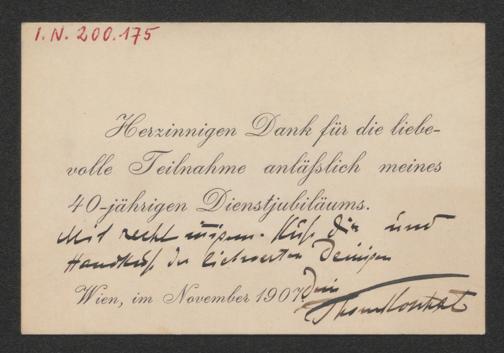 I.N. 200.175
Herzinnigen Dank für die liebe-
volle Teilnahme anläßlich meines
40-jährigen Dienstjubiläums.
Mit recht Kuß Dir und
Handkuß den Deinigen
Dein
Wien, im November 1907.